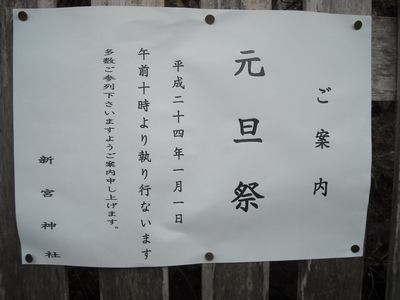 ご案内
元旦祭
平成二十四年一月一日
午前十時より執り行ないます
多数ご参列下さいますようご案内申し上げます。
新宮神社